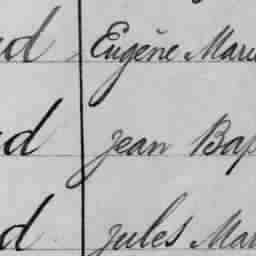 d Eugène Mari
d Jean Bap
d Jules Mar